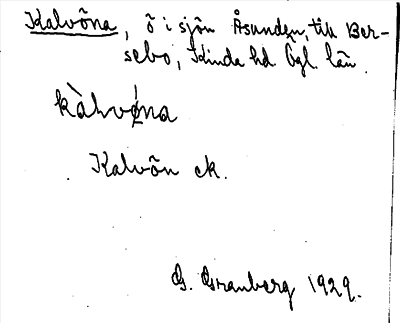 Kalvöna, ö i sjön Åsunden, till Ber-
sebo, Kinda hd Ögl. län.
kàlvǿna
Kalvön ek.
G. Granberg 1929.